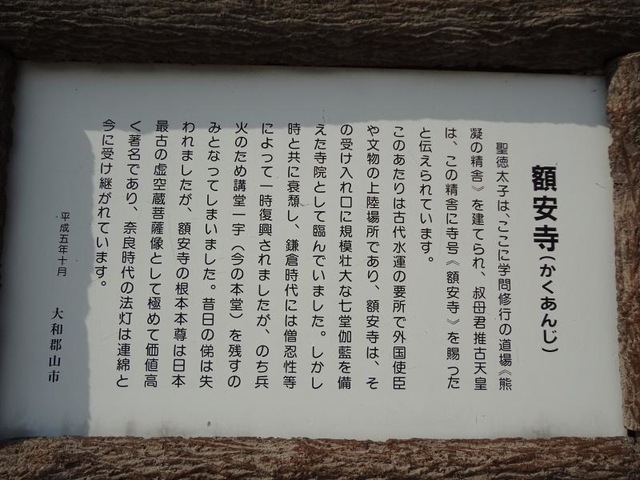 額安寺(かくあんじ)
聖徳太子は、ここに学問修行の道場《熊
凝の精舎》を建てられ、叔母君推古天皇
は、この精舎に寺号《額安寺》を賜った
と伝えられています。
このあたりは古代水運の要所で外国使臣
や文物の上陸場所であり、額安寺は、そ
の受け入れ口に規模壮大な七堂伽藍を備
えた寺院として臨んでいました。しかし
時と共に衰頽し、鎌倉時代には僧忍性等
によって一時復興されましたが、のち兵
火のため講堂一宇(今の本堂)を残すの
みとなってしまいました。昔日の俤は失
われましたが、額安寺の根本本尊は日本
最古の虚空蔵菩薩像として極めて価値高
く著名であり、奈良時代の法灯は連綿と
今に受け継がれています。
平成五年十月
大和郡山市